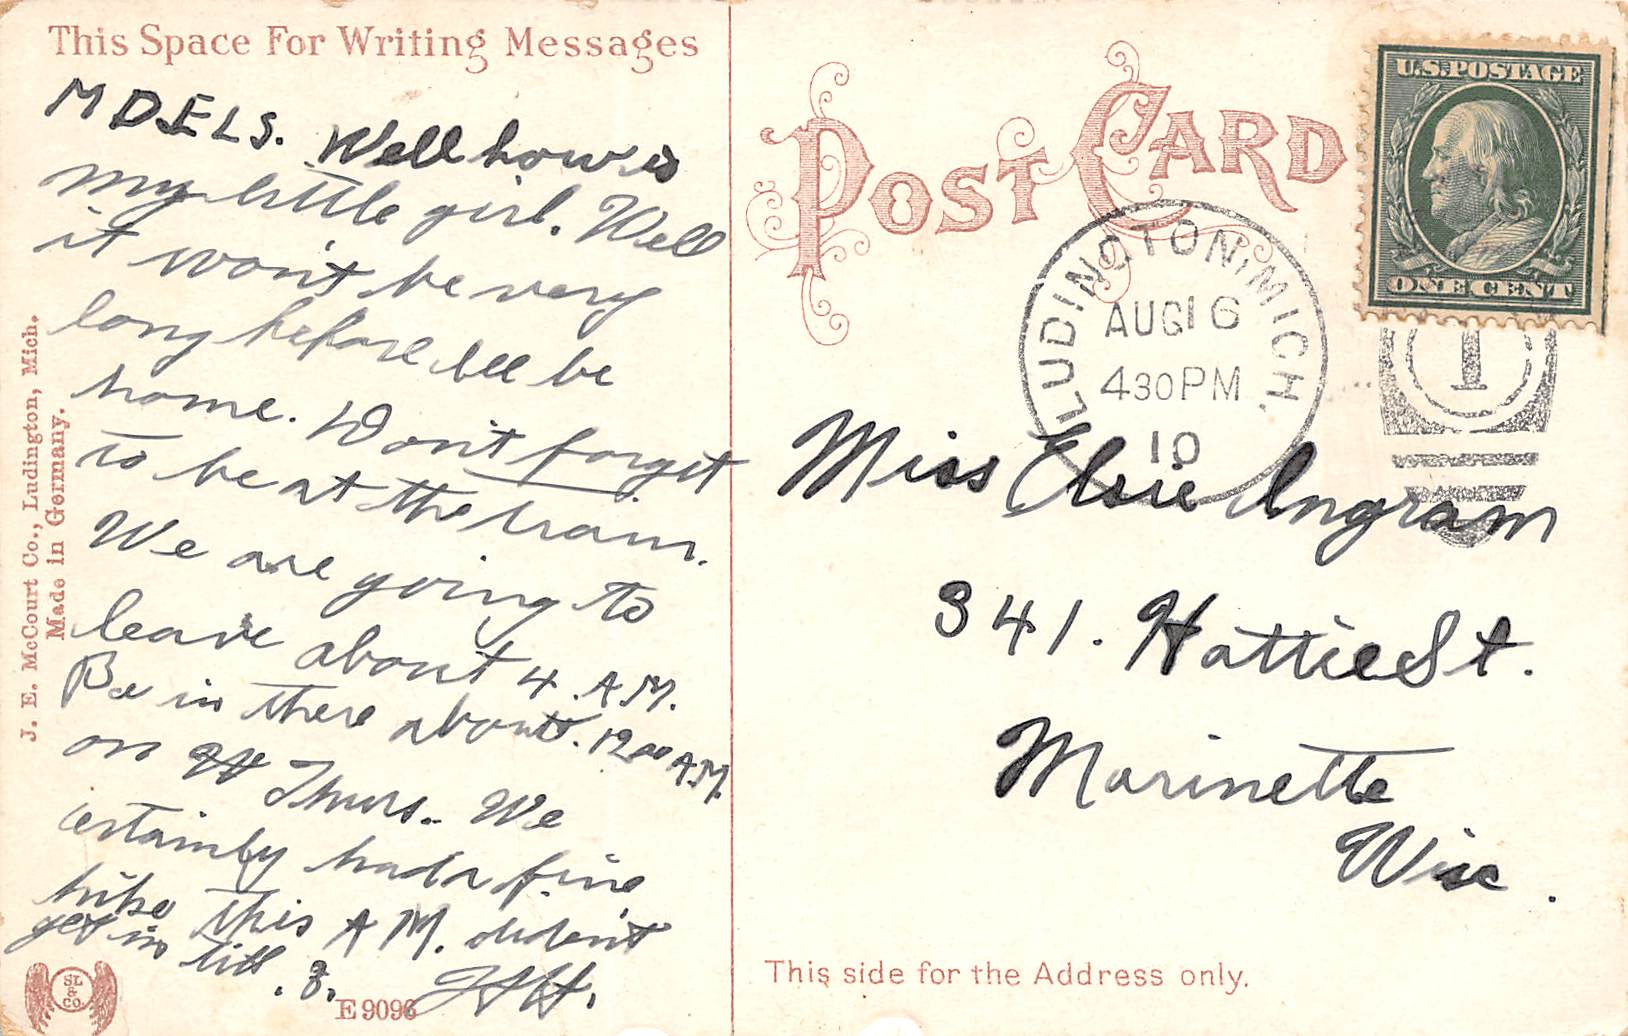 This Space For Writing Messages
M D.E L S. Well how is
my little girl. Well
it won't be very
long before Ill be
home. Don't forget
to be at the train.
We are going to
leave about 4. A.M.
Be in there about. 12 00 A.M.
on Thurs.. We
certainly had a fine
hike this A M. dident
get in till .3.
J. E. McCourt Co., Ludington, Mich.
Made in Germany.
SL & Co.
E 9096
POST CARD
U.S. POSTAGE
ONE CENT
LUDINGTON, MICH.
AUG 16
430 PM
10
1
Miss Elsie Ingram
341. Hattie St.
Marinette
Wis.
This side for the Address only.